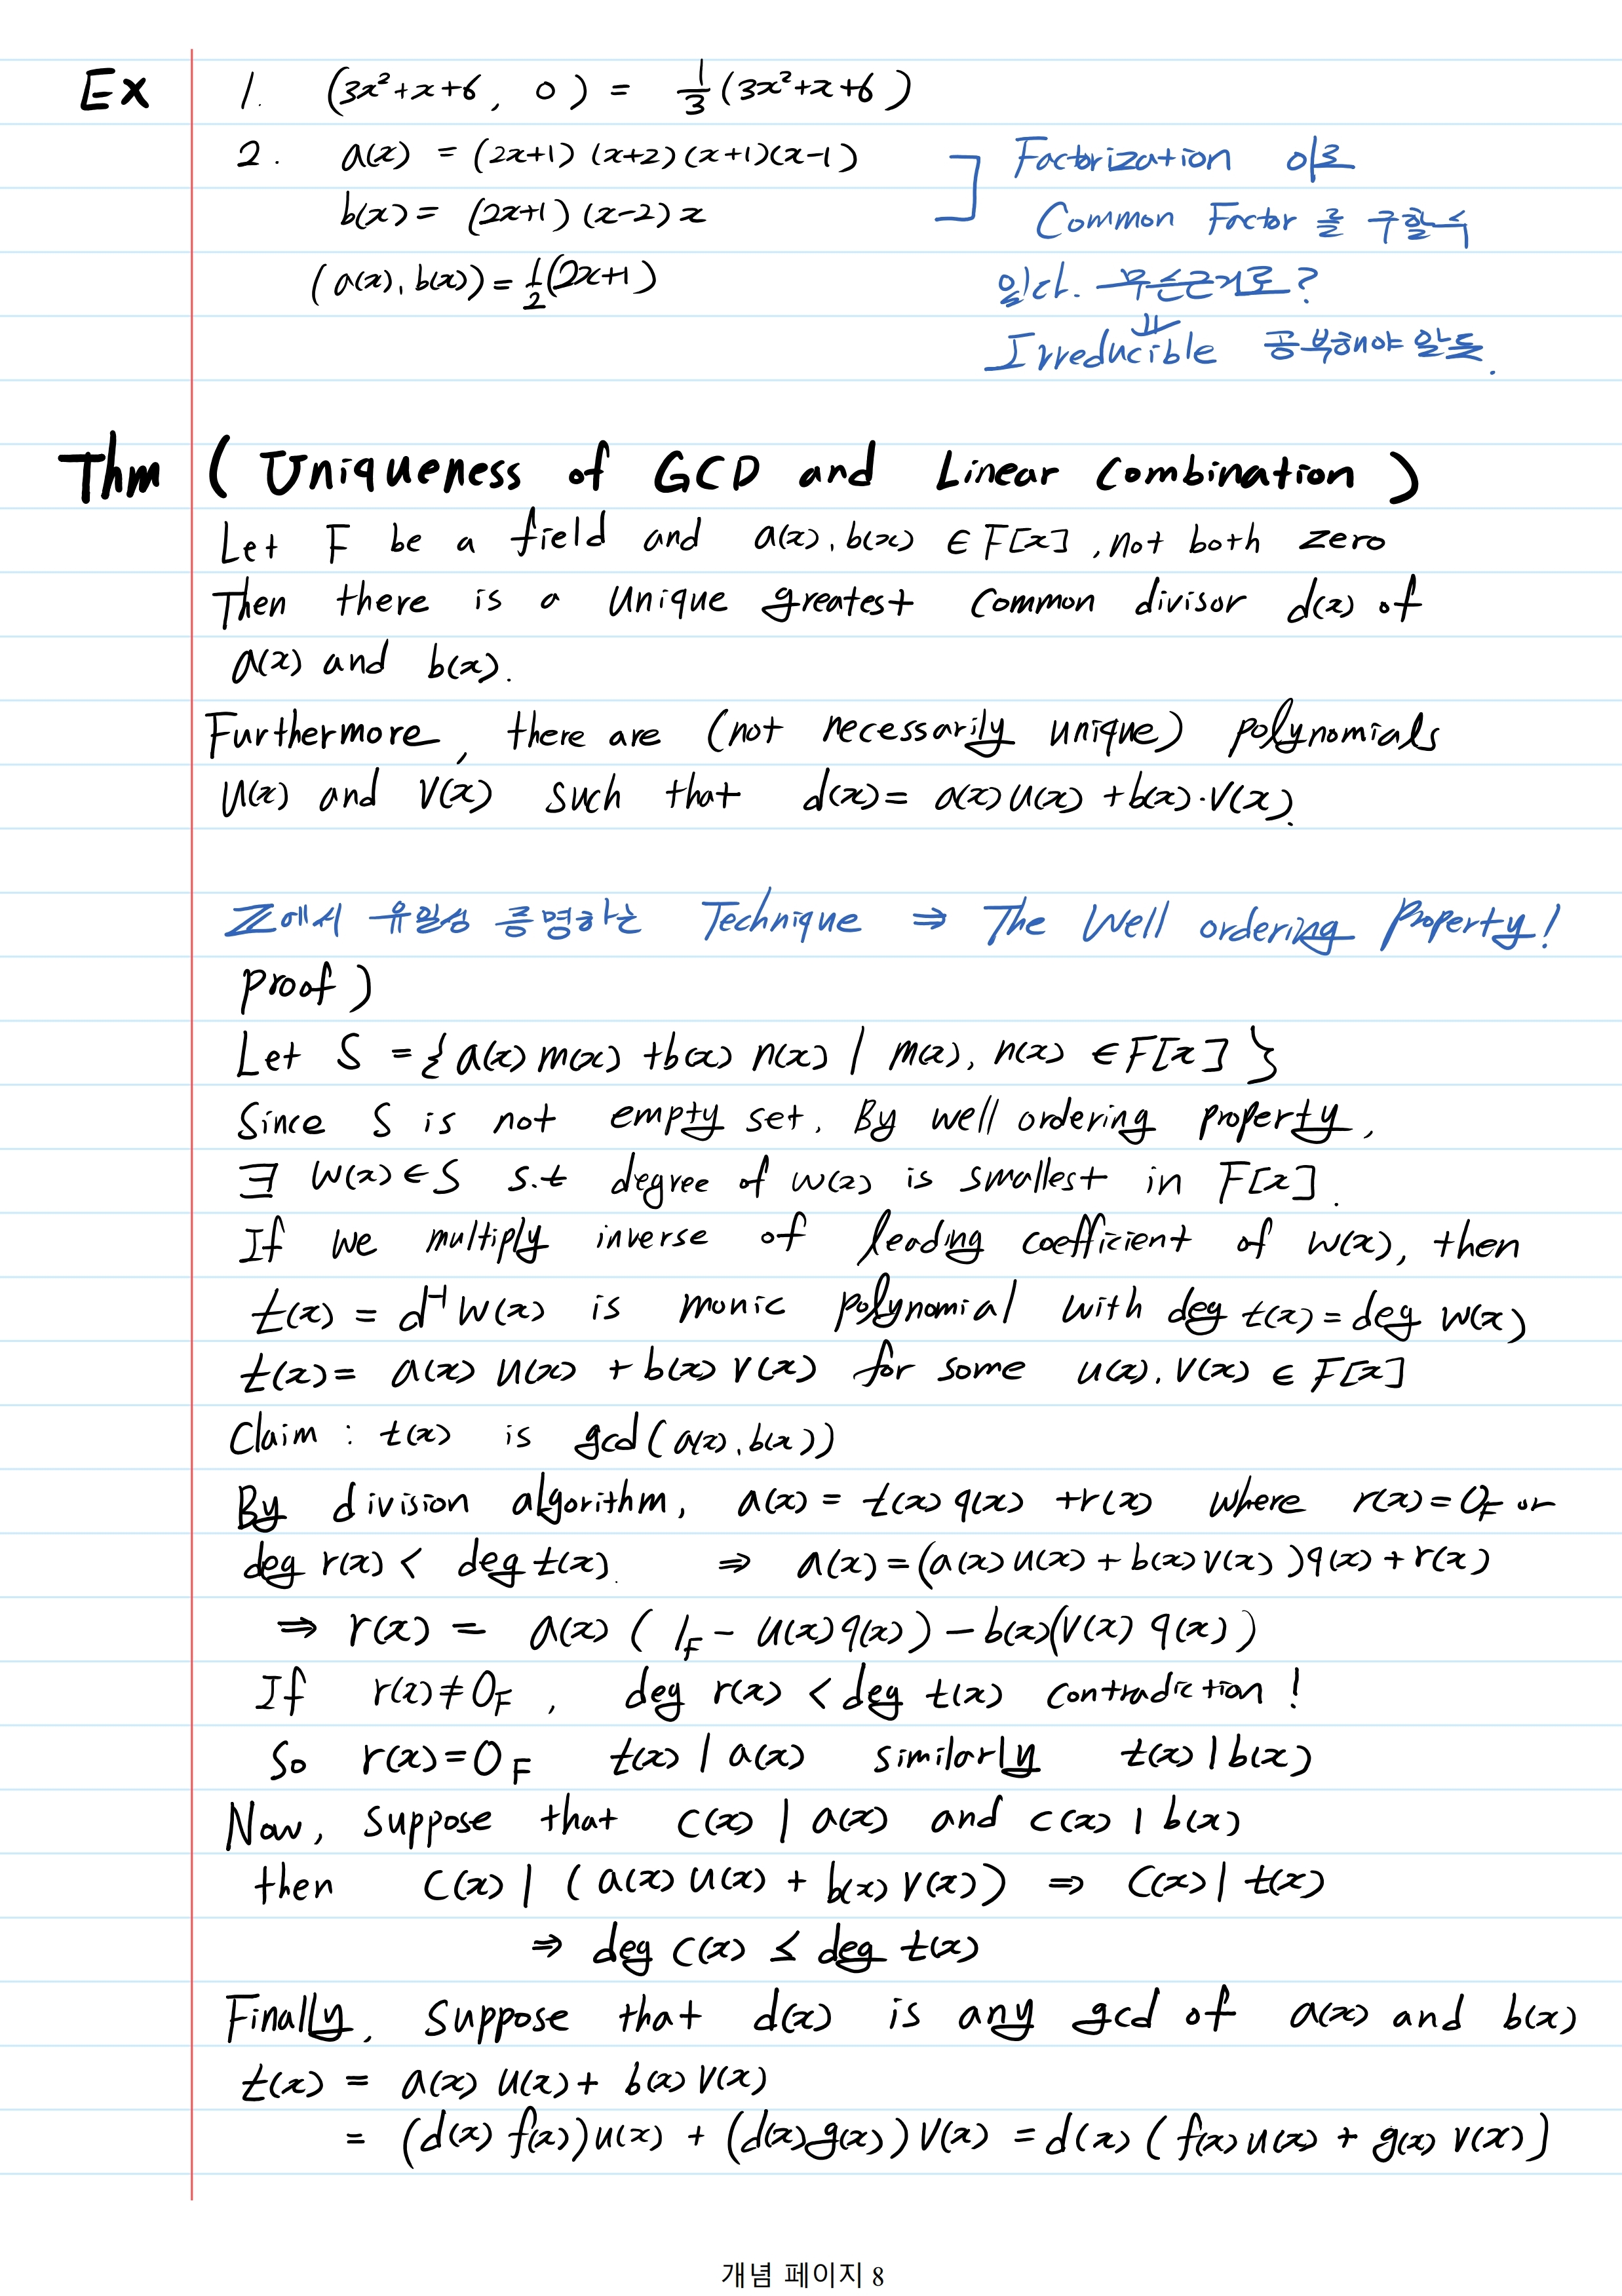 Ex 1. (3x²+x+6, 0) = 1/3 (3x²+x+6)
2. a(x) = (2x+1)(x+2)(x+1)(x-1)
b(x) = (2x+1)(x-2)x
(a(x), b(x)) = 1/2 (2x+1)
Factorization 이후
Common Factor 를 구할 수
있다. 무슨근거로?
⇓
Irreducible 공부해야 알듯.
Thm (Uniqueness of GCD and Linear Combination)
Let F be a field and a(x), b(x) ∈ F[x], not both zero
Then there is a unique greatest common divisor d(x) of
a(x) and b(x).
Furthermore, there are (not necessarily unique) polynomials
u(x) and v(x) such that d(x) = a(x)u(x) + b(x)·v(x).
ℤ에서 유일성 증명하는 Technique ⇒ The Well ordering Property!
proof)
Let S = {a(x)m(x) + b(x)n(x) | m(x), n(x) ∈ F[x]}
Since S is not empty set. By well ordering property,
∃ w(x) ∈ S s.t degree of w(x) is smallest in F[x].
If we multiply inverse of leading coefficient of w(x), then
t(x) = d⁻¹w(x) is monic polynomial with deg t(x) = deg w(x)
t(x) = a(x)u(x) + b(x)v(x) for some u(x), v(x) ∈ F[x]
Claim : t(x) is gcd(a(x), b(x))
By division algorithm, a(x) = t(x)q(x) + r(x) where r(x) = 0_F or
deg r(x) < deg t(x). ⇒ a(x) = (a(x)u(x) + b(x)v(x))q(x) + r(x)
⇒ r(x) = a(x)(1_F - u(x)q(x)) - b(x)(v(x)q(x))
If r(x) ≠ 0_F, deg r(x) < deg t(x) contradiction!
So r(x) = 0_F t(x) | a(x) similarly t(x) | b(x)
Now, suppose that c(x) | a(x) and c(x) | b(x)
then c(x) | (a(x)u(x) + b(x)v(x)) ⇒ c(x) | t(x)
⇒ deg c(x) ≤ deg t(x)
Finally, suppose that d(x) is any gcd of a(x) and b(x)
t(x) = a(x)u(x) + b(x)v(x)
= (d(x)f(x))u(x) + (d(x)g(x))v(x) = d(x)(f(x)u(x) + g(x)v(x))
개념 페이지 8